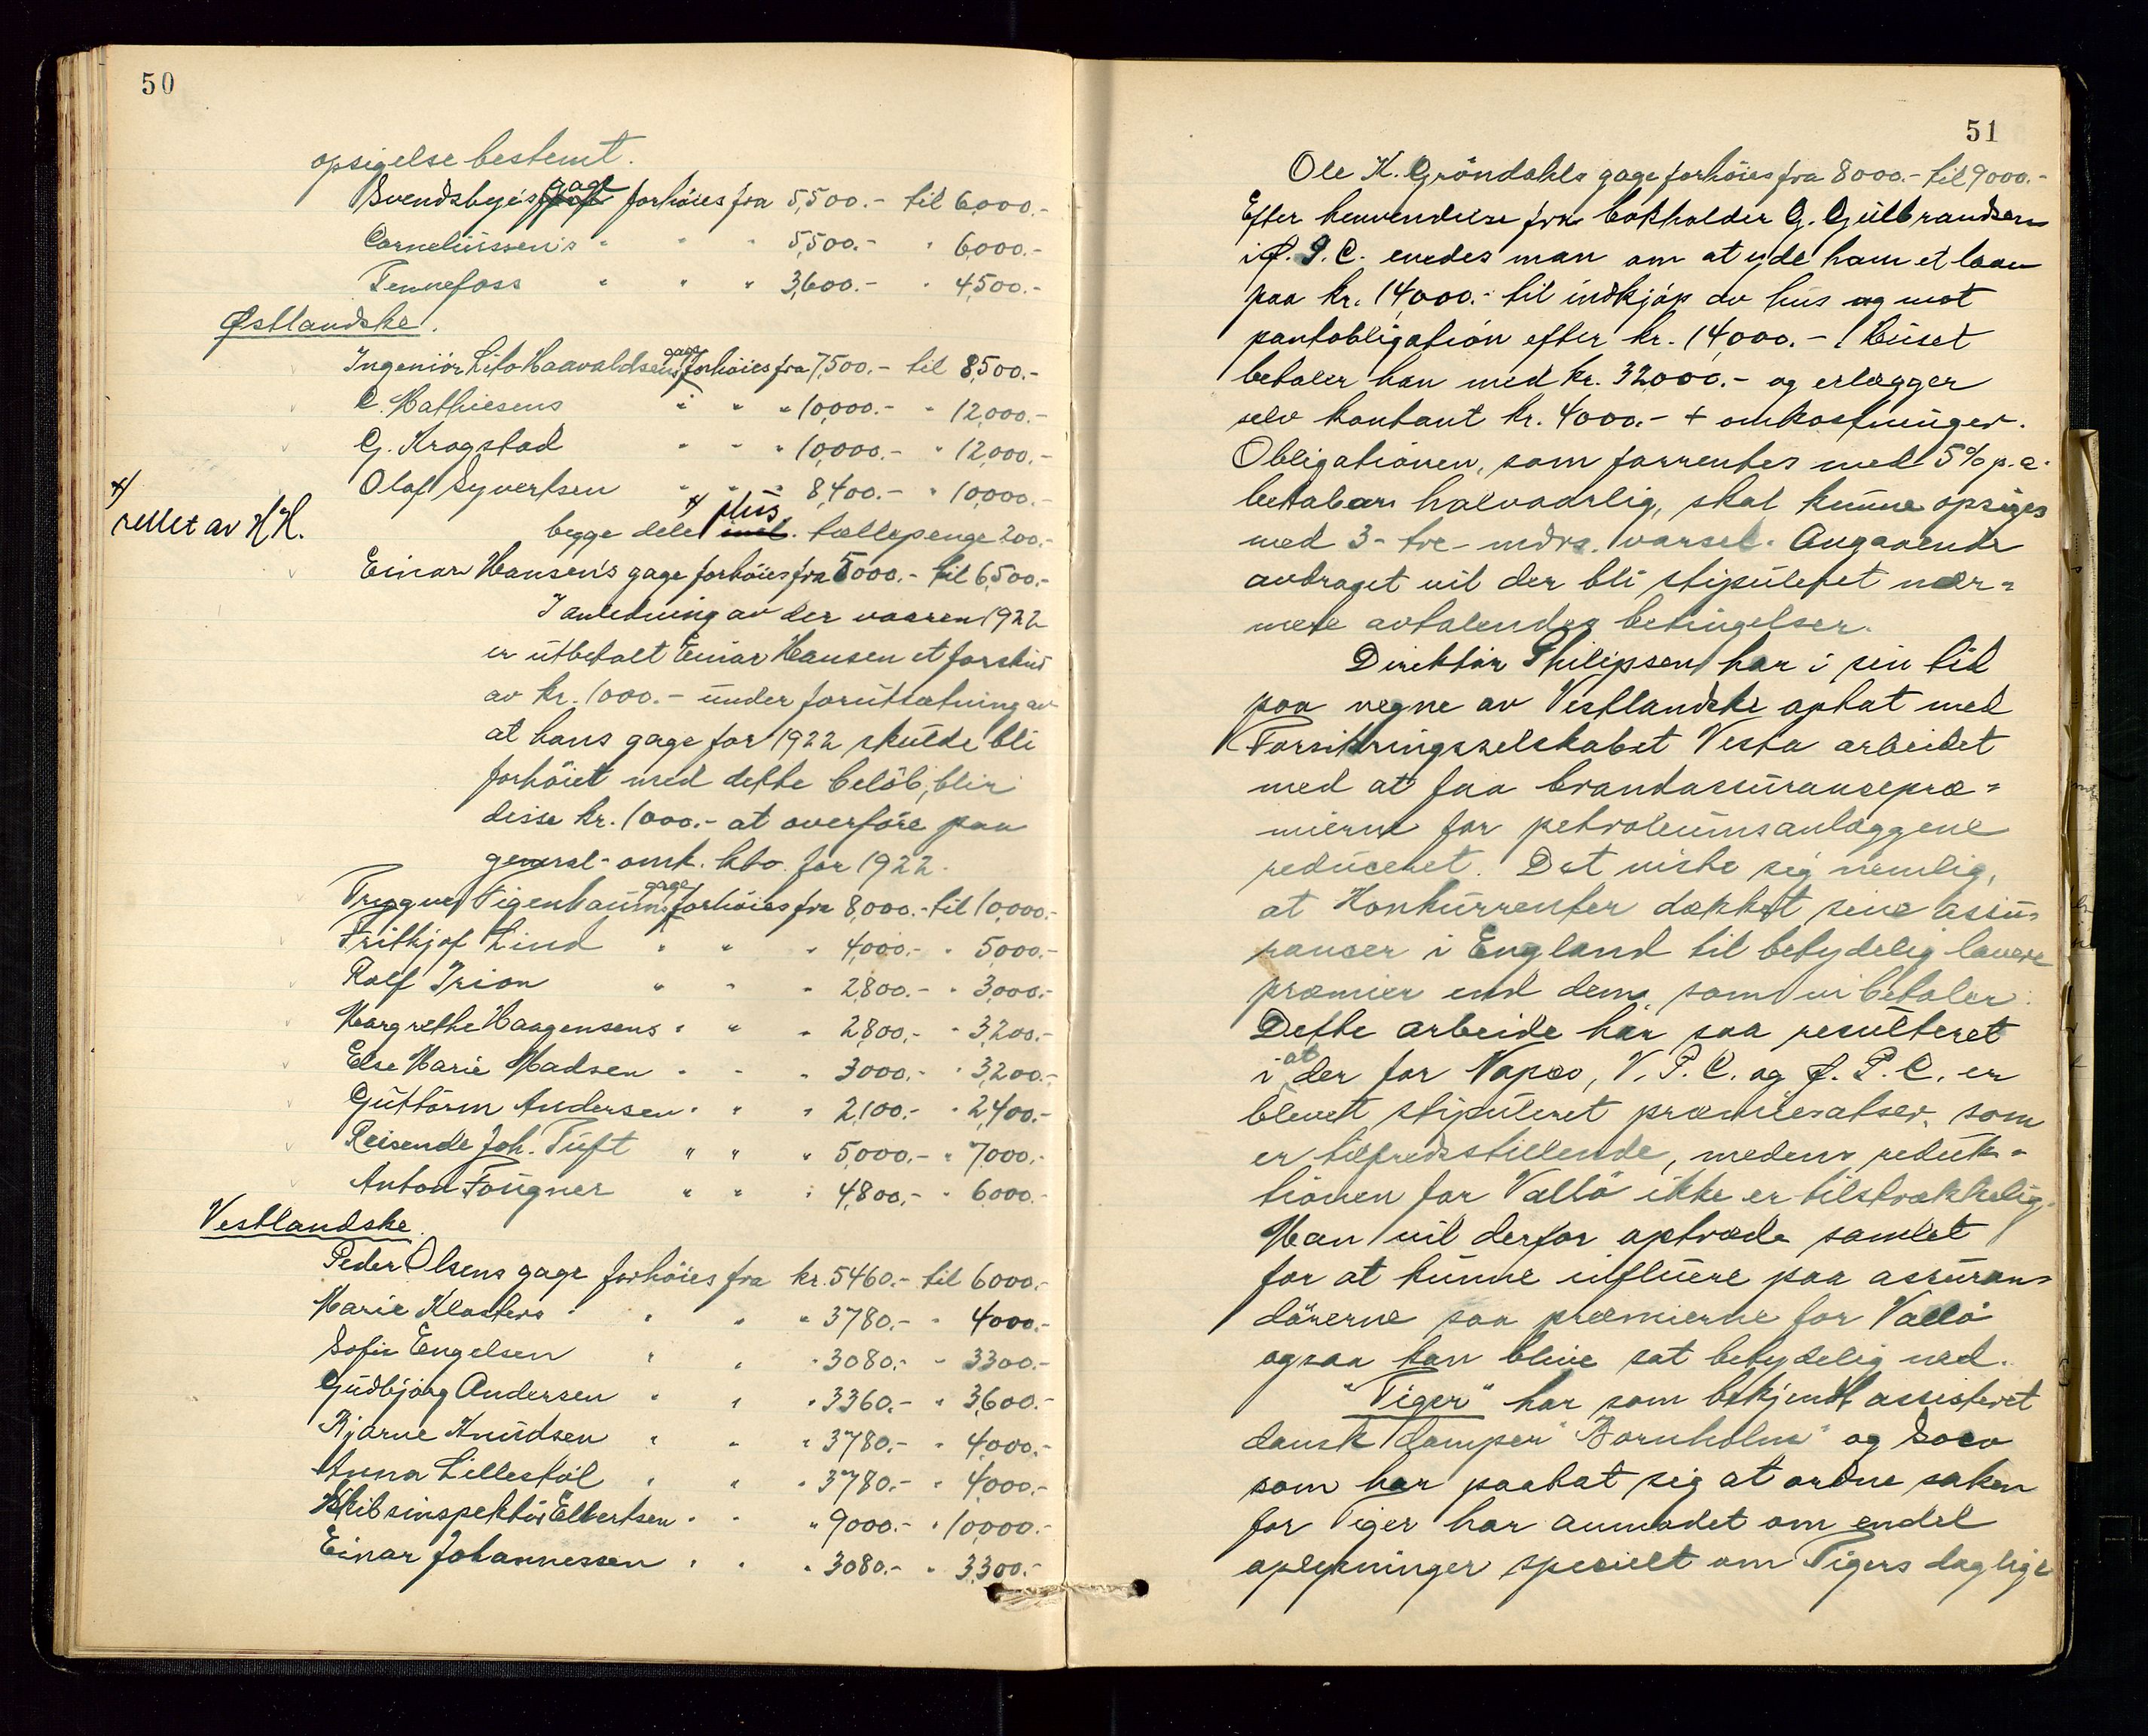 50
opsigelse bestemt.
Svendsbye's gage forhöies fra 5,500.- til 6,000.-
Corneliussen's " " " 5,500.- " 6,000.-
Fennefoss " " " 3,600.- " 4,500.-
Østlandske.
Ingeniör Lito Haavaldsens gage forhöies fra 7,500.- til 8,500.-
C. Mathiesens " " " 10,000.- " 12,000.-
G. Krogstad " " " 10,000.- " 12,000.-
Olaf Syvertsen " " " 8,400.- " 10,000.-
x/ rettet av HH.
begge dele x/ plus incl. tællepenge 200.-
Einar Hansen's gage forhöies fra 5000.- til 6,500.-
I anledning av der vaaren 1922
er utbetalt Einar Hansen et forskud
av kr. 1000.- under forutsætning av
at hans gage for 1922 skulde bli
forhöiet med dette belöb, blir
disse kr. 1000.- at overföre paa
general-omk. kto. for 1922.
Trygve Figenbaums gage forhöies fra 8,000.- til 10,000.-
Frithjof Lind " " " 4,000.- " 5,000.-
Rolf Irion " " " 2,800.- " 3,000.-
Margrethe Haagensens " " " 2,800.- " 3,200.-
Else Marie Madsen " " " 3000.- " 3,200.-
Guttorm Andersen " " " 2,100.- " 2,400.-
Reisende Joh. Tuft " " " 5,000.- " 7,000.-
Anton Fougner " " " 4,800.- " 6,000.-
Vestlandske.
Peder Olsens gage forhöies fra kr. 5460.- til 6000.-
Marie Klosters " " " " 3780.- " 4000.-
Sofie Engelsen " " " 3080.- " 3300.-
Gudbjørg Andersen " " " 3360.- " 3,600.-
Bjarne Knudsen " " " 3780.- " 4,000.-
Anna Lillestöl " " " 3780.- " 4,000.-
Skibsinspektör Ellertsen " " " 9000.- " 10,000.-
Einar Johannessen " " " 3080.- " 3,300.-
51
Ole K. Gröndahls gage forhöies fra 8000.- til 9000.-
Efter henvendelse fra bokholder G. Gulbrandsen
i Ø. P. C. enedes man om at yde ham et laan
paa kr. 14,000.- til indkjöp av hus og mot
pantobligation efter kr. 14,000.- Huset
betaler han med kr. 32000.- og erlægger
selv kontant kr. 4000.- + omkostninger.
Obligationen, som forrentes med 5% p.a.
betalbar halvaarlig, skal kunne opsiges
med 3- tre- mdrs. varsel. Angaaende
avdraget vil der bli stipulert nær=
mere avtalendes betingelser.
Direktör Philipsen har i sin tid
paa vegne av Vestlandske optat med
Forsikringsselskabet Vesta arbeidet
med at faa brandassurancepræ=
mierne for petroleumsanlæggene
reduceret. Det viste sig nemlig,
at Konkurrenter dækket sine assu=
rancer i England til betydelig lavere
præmier end dem, som vi betaler.
Dette arbeide har saa resulteret
i at der for Vapco, V. P. C. og Ø. P. C. er
blevet stipuleret præmiesatser, som
er tilfredsstillende, medens reduk=
tionen for Vallö ikke er tilstrækkelig.
Man vil derfor optræde samlet
for at kunne influere paa assuran=
dörerne saa præmierne for Vallö
ogsaa kan blive sat betydelig ned.
"Tiger" har som bekjendt assisteret
dansk damper "Bornholm" og Soco
som har paatat sig at ordne saken
for Tiger har anmodet om endel
oplysninger specielt om Tigers daglige